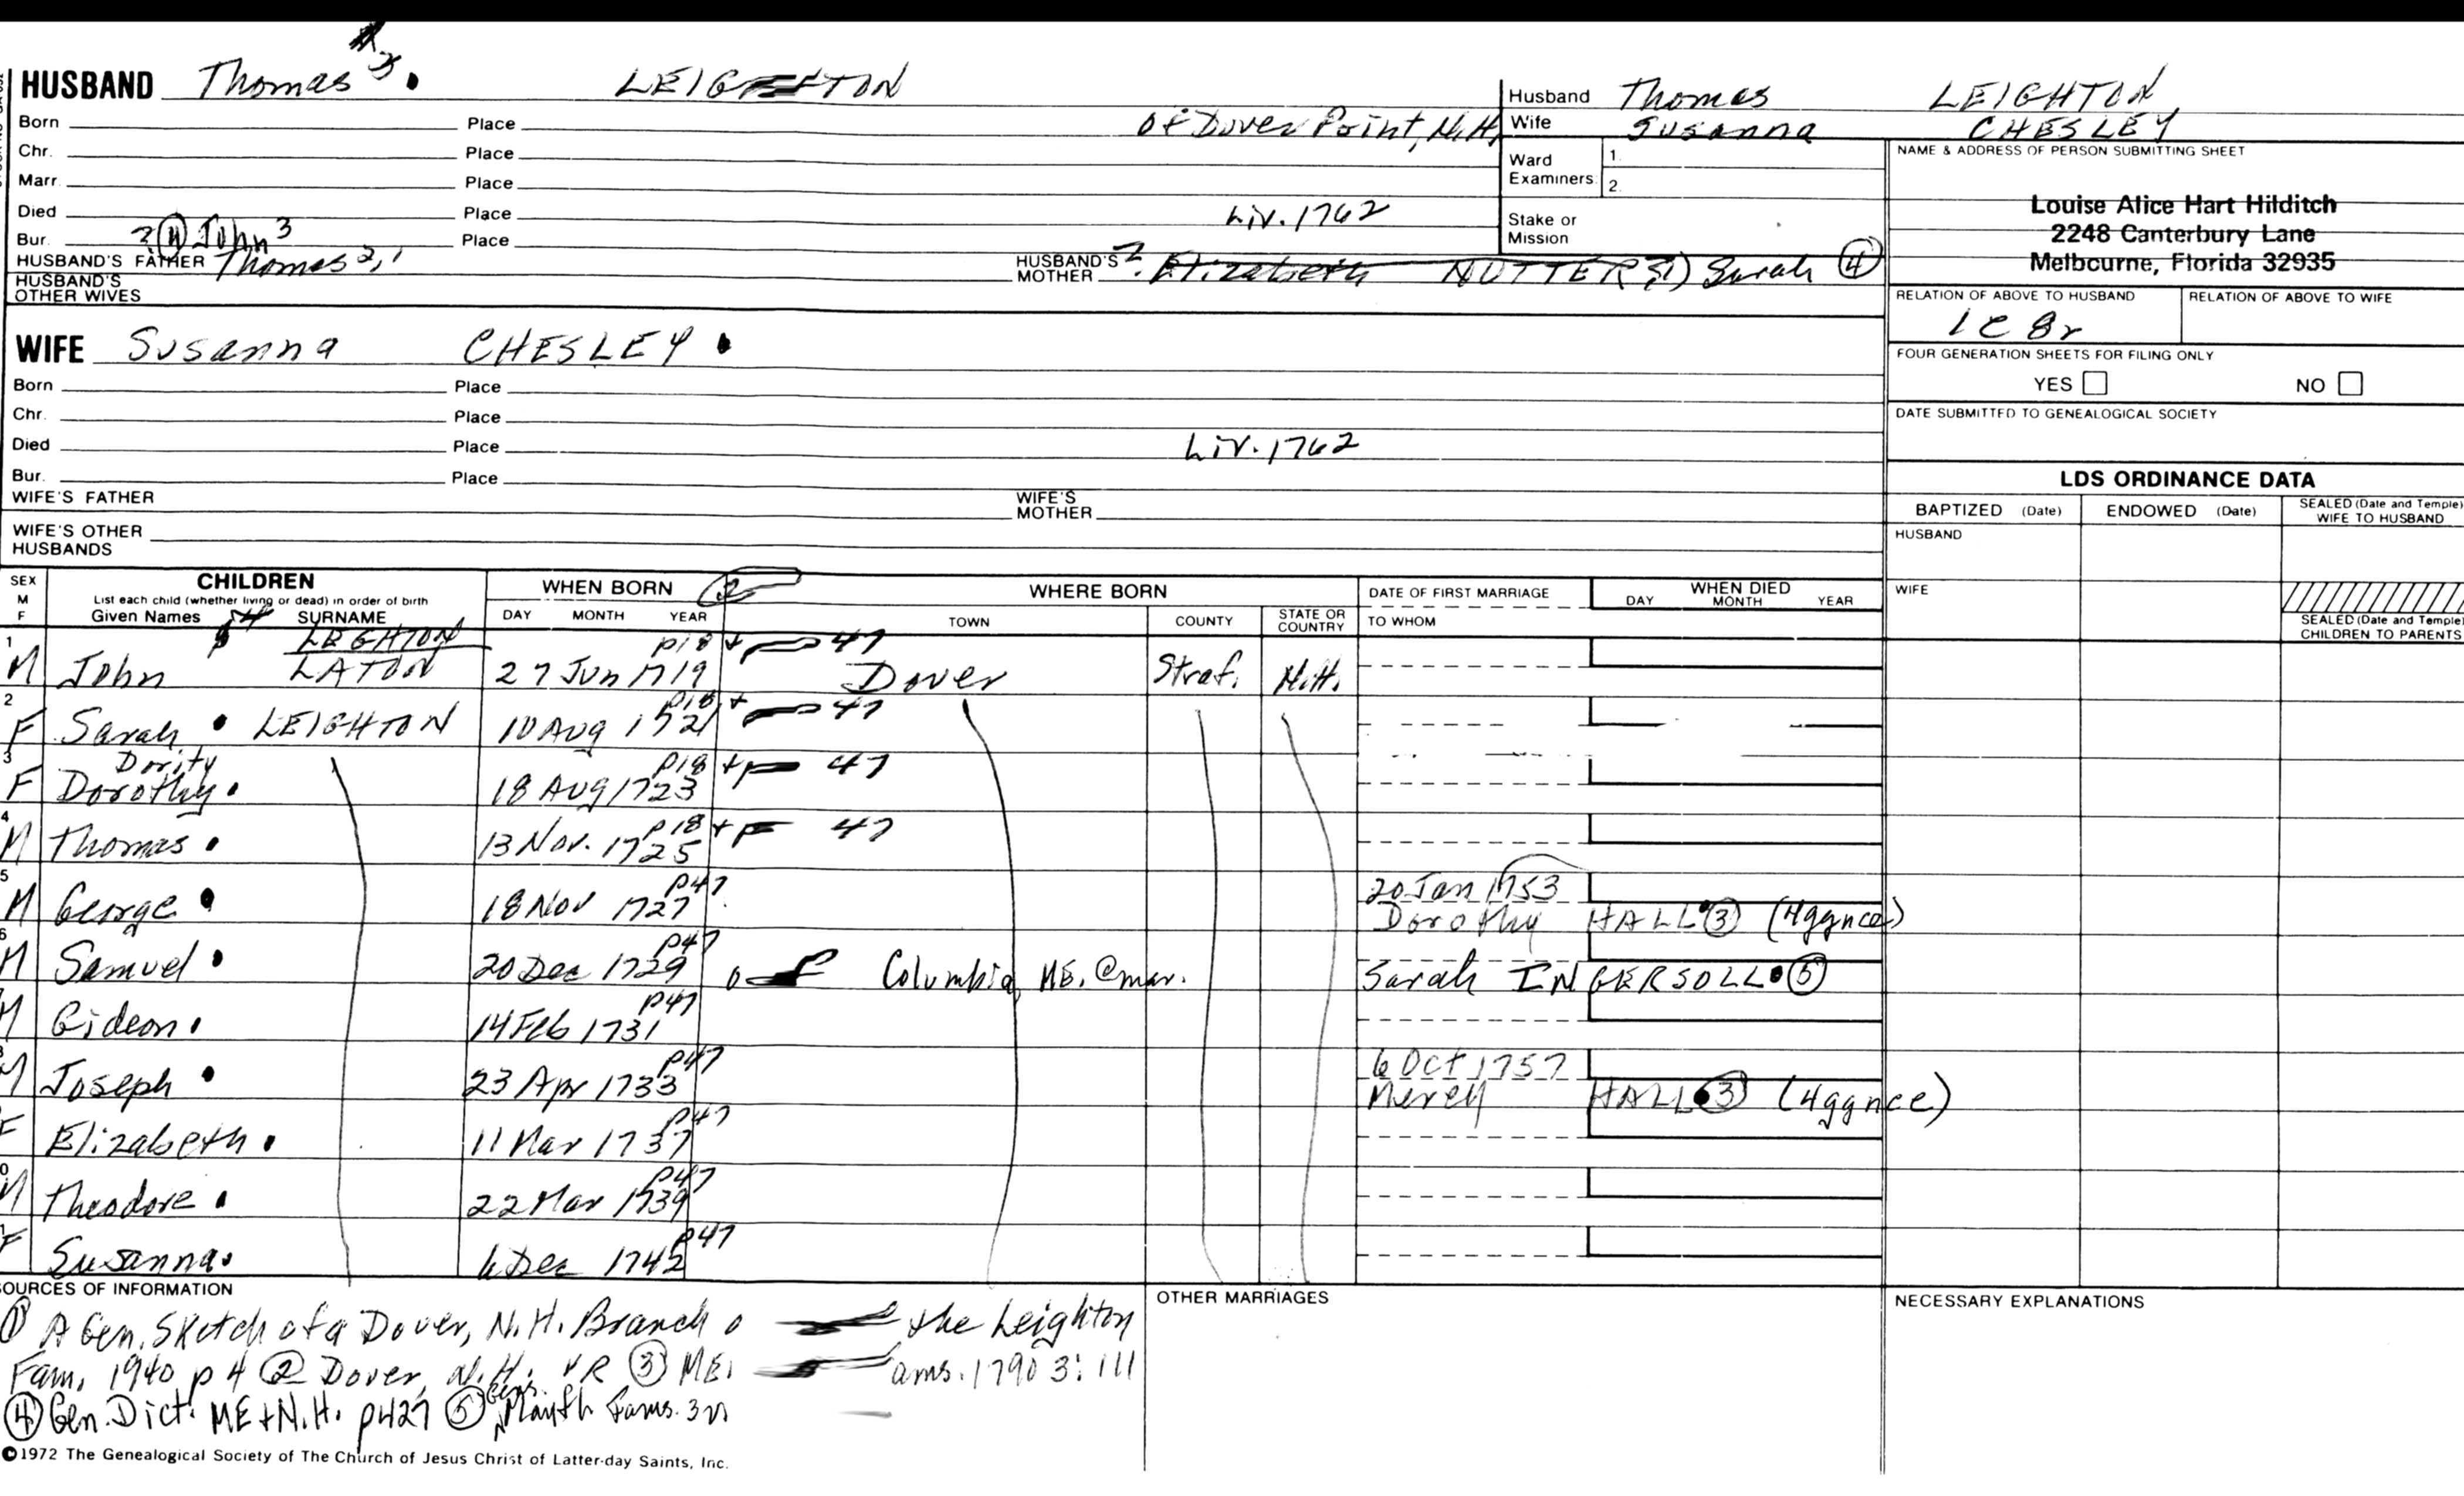 HUSBAND Thomas 3. LEIGHTON
Husband Thomas LEIGHTON
Born Place of Dover Point, N.H.
Wife Susanna CHESLEY
Chr. Place
Ward Examiners 1. 2.
NAME & ADDRESS OF PERSON SUBMITTING SHEET
Marr. Place
Died Place Liv. 1762
Stake or Mission
Louise Alice Hart Hilditch
2248 Canterbury Lane
Melbourne, Florida 32935
Bur. Place
? ④ John 3
HUSBAND'S FATHER Thomas 2,1
HUSBAND'S MOTHER ? Elizabeth NUTTER Sarah ④
HUSBAND'S OTHER WIVES
RELATION OF ABOVE TO HUSBAND
RELATION OF ABOVE TO WIFE
1C 8r
WIFE Susanna CHESLEY
FOUR GENERATION SHEETS FOR FILING ONLY
YES NO
Born Place
Chr. Place
DATE SUBMITTED TO GENEALOGICAL SOCIETY
Died Place Liv. 1762
Bur. Place
WIFE'S FATHER
WIFE'S MOTHER
WIFE'S OTHER HUSBANDS
LDS ORDINANCE DATA
BAPTIZED (Date) ENDOWED (Date) SEALED (Date and Temple) WIFE TO HUSBAND
HUSBAND
WIFE
SEALED (Date and Temple) CHILDREN TO PARENTS
SEX M F
CHILDREN
List each child (whether living or dead) in order of birth
Given Names SURNAME
WHEN BORN ②
DAY MONTH YEAR
WHERE BORN
TOWN COUNTY STATE OR COUNTRY
DATE OF FIRST MARRIAGE
TO WHOM
WHEN DIED
DAY MONTH YEAR
LEIGHTON p18 + 47
1 M John LATON 27 Jun 1719 Dover Straf. N.H.
p18 + 47
2 F Sarah LEIGHTON 10 Aug 1721
Dority p18 + p 47
3 F Dorothy 18 Aug 1723
p18 + p 47
4 M Thomas 13 Nov. 1725
p47 20 Jan 1753
5 M George 18 Nov 1727 Dorothy HALL ③ (4ggnce)
p47
6 M Samuel 20 Dec 1729 of Columbia, ME. @ mar. Sarah INGERSOLL ⑤
p47
M Gideon 14 Feb 1731
p47 6 Oct 1757
M Joseph 23 Apr 1733 Mercy HALL ③ (4ggnce)
p47
F Elizabeth 11 Mar 1737
p47
M Theodore 22 Mar 1739
p47
F Susanna 6 Dec 1742
SOURCES OF INFORMATION
OTHER MARRIAGES
NECESSARY EXPLANATIONS
① A Gen. Sketch of a Dover, N.H. Branch o the Leighton
Fam. 1940 p 4 ② Dover, N.H. VR ③ ME. ams. 1790 3:111
④ Gen. Dict. ME + N.H. p427 ⑤
©1972 The Genealogical Society of The Church of Jesus Christ of Latter-day Saints, Inc.